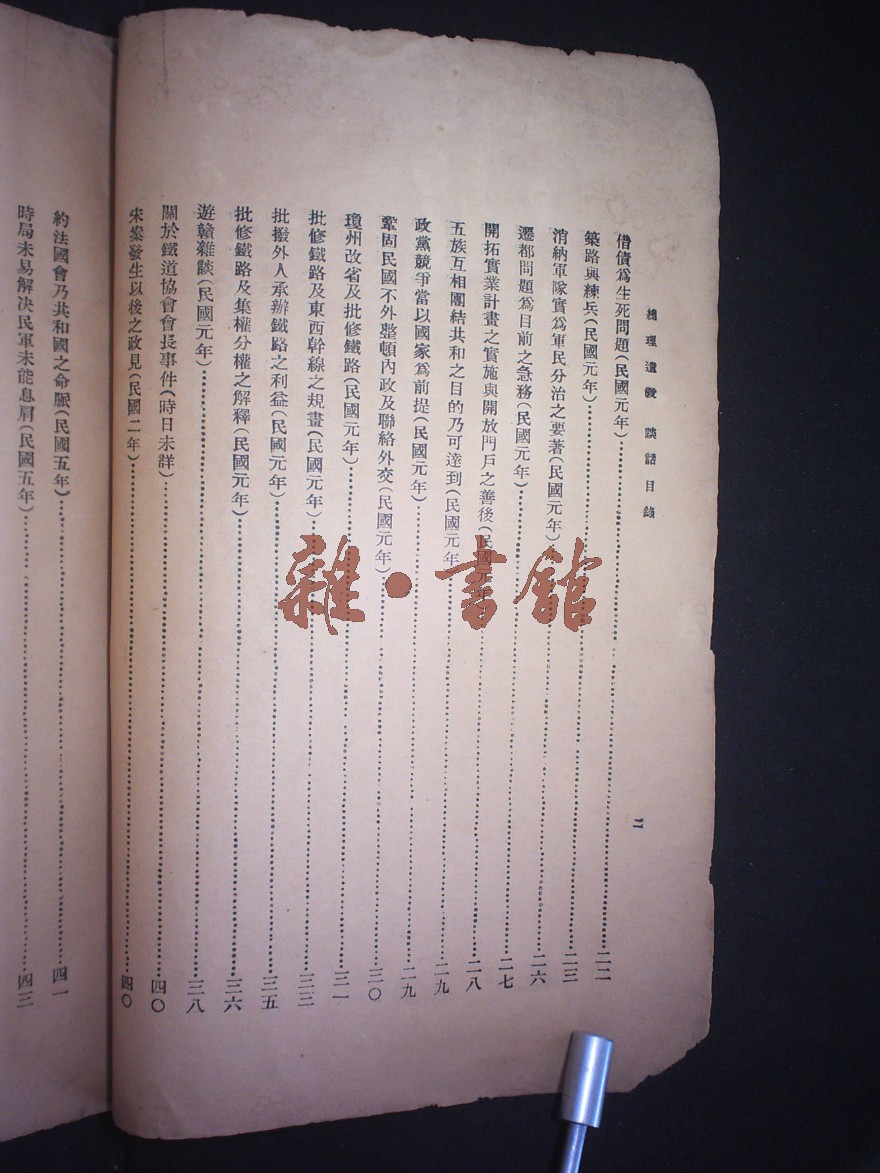 總理遺教 談話目錄
二
借債爲生死問題(民國元年)……二二
築路與練兵(民國元年)……二三
消納軍隊實爲軍民分治之要著(民國元年)……二六
遷都問題爲目前之急務(民國元年)……二七
開拓實業計畫之實施與開放門戶之善後(民國元年)……二八
五族互相團結共和之目的乃可達到(民國元年)……二九
政黨競爭當以國家爲前提(民國元年)……二九
鞏固民國不外整頓內政及聯絡外交(民國元年)……三〇
瓊州改省及批修鐵路(民國元年)……三一
批修鐵路及東西幹線之規畫(民國元年)……三三
批撥外人承辦鐵路之利益(民國元年)……三五
批修鐵路及集權分權之解釋(民國元年)……三六
遊贛雜談(民國元年)……三八
關於鐵道協會會長事件(時日未詳)……四〇
宋案發生以後之政見(民國二年)……四〇
約法國會乃共和國之命脈(民國五年)……四一
時局未易解決民軍未能息肩(民國五年)……四三
雜·書館